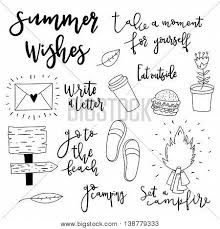 Summer
Wishes
take a moment
for yourself
Eat outside
Write
a letter
go to
the
beach
go
camping
Set a
campfire
BIGSTOCK
shutterstock.com · 138779333